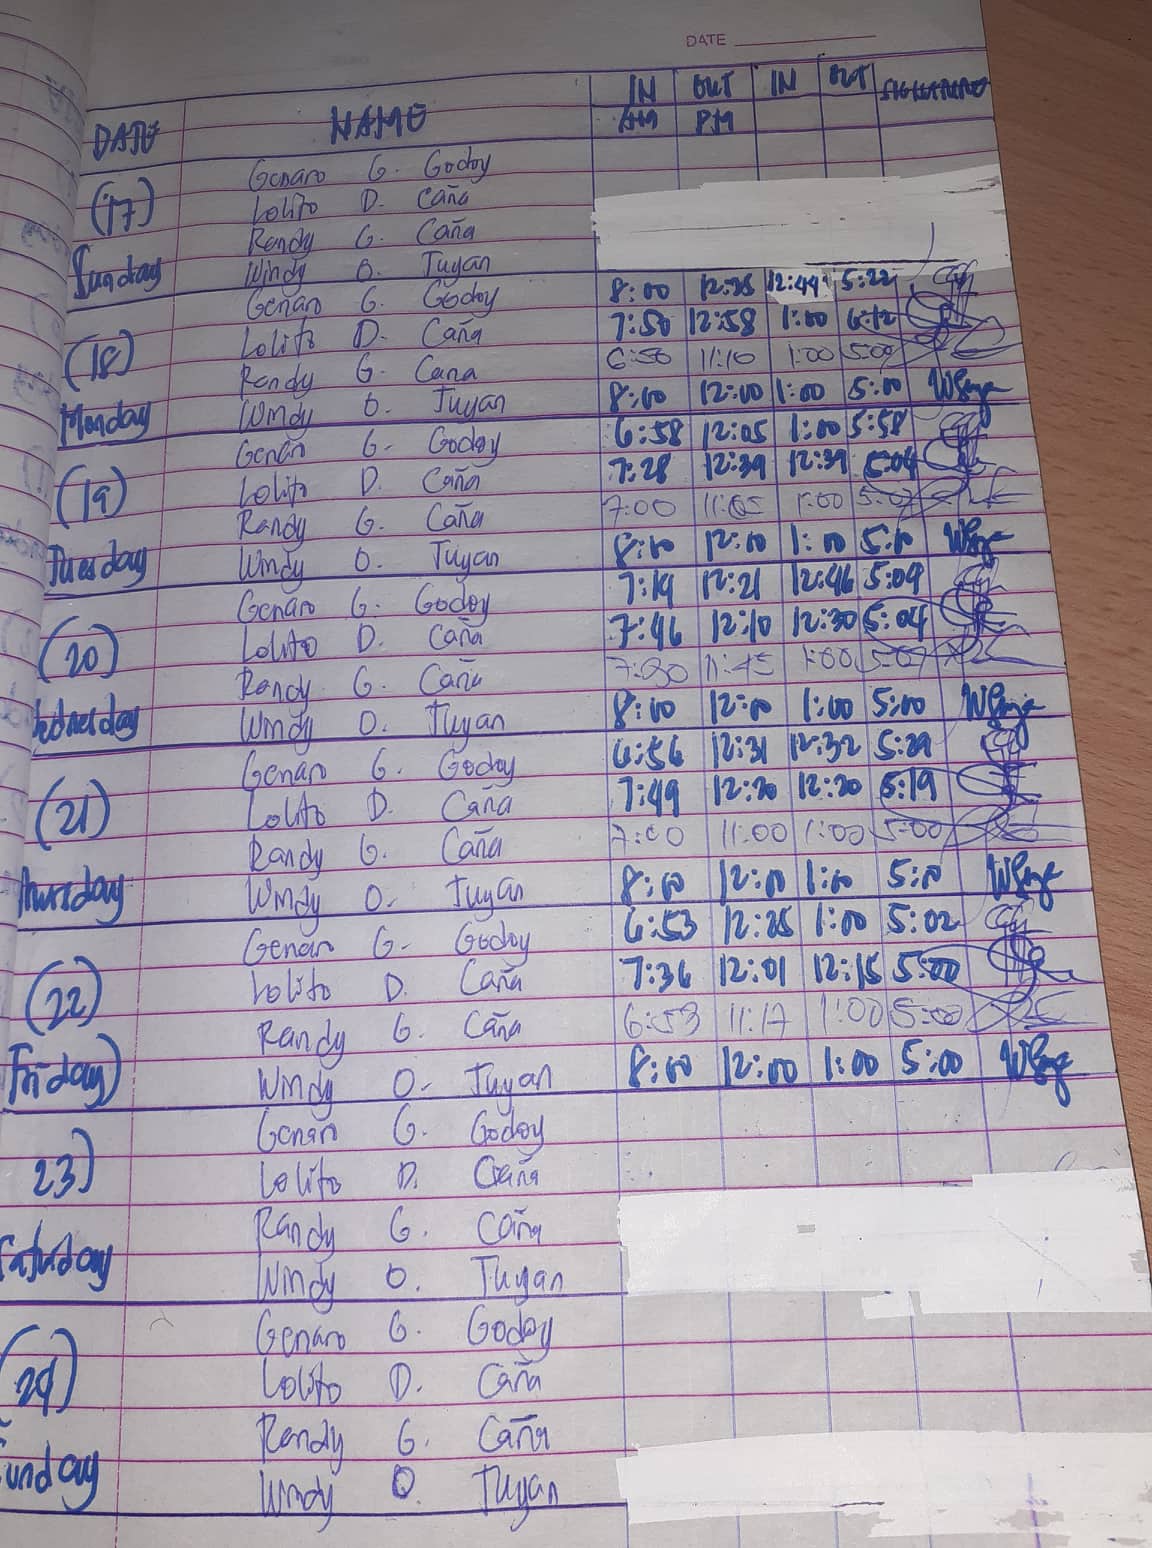 DATE
DATE NAME IN OUT IN OUT
AM PM
Genaro G. Godoy
(17) Lolito D. Caña
Randy G. Caña
Sunday Windy O. Tuyan
Genaro G. Godoy 8:00 12:25 12:49 5:22
(18) Lolito D. Caña 7:50 12:58 1:00 6:12
Randy G. Cana 6:50 11:10 1:00 5:09
Monday Windy O. Tuyan 8:00 12:00 1:00 5:00
Genaro G. Godoy 6:58 12:05 1:00 5:58
(19) Lolito D. Caña 7:28 12:39 12:39 5:04
Randy G. Caña 7:00 11:05 1:00
Tuesday Windy O. Tuyan 8:00 12:00 1:00 5:00
Genaro G. Godoy 7:19 12:21 12:46 5:09
(20) Lolito D. Caña 7:46 12:10 12:30 5:04
Randy G. Caña 7:30 11:45 1:00 5:07
Wednesday Windy O. Tuyan 8:00 12:00 1:00 5:00
Genaro G. Godoy 6:56 12:31 12:32 5:29
(21) Lolito D. Caña 7:49 12:20 12:20 5:19
Randy G. Caña 7:00 11:00 1:00 5:00
Thursday Windy O. Tuyan 8:00 12:00 1:00 5:00
Genaro G. Godoy 6:53 12:25 1:00 5:02
(22) Lolito D. Caña 7:36 12:01 12:15 5:00
Randy G. Caña 6:53 11:17 1:00 5:00
Friday) Windy O. Tuyan 8:00 12:00 1:00 5:00
Genaro G. Godoy
23) Lolito D. Caña
Randy G. Caña
Saturday Windy O. Tuyan
Genaro G. Godoy
(24) Lolito D. Caña
Randy G. Caña
Sunday Windy O. Tuyan